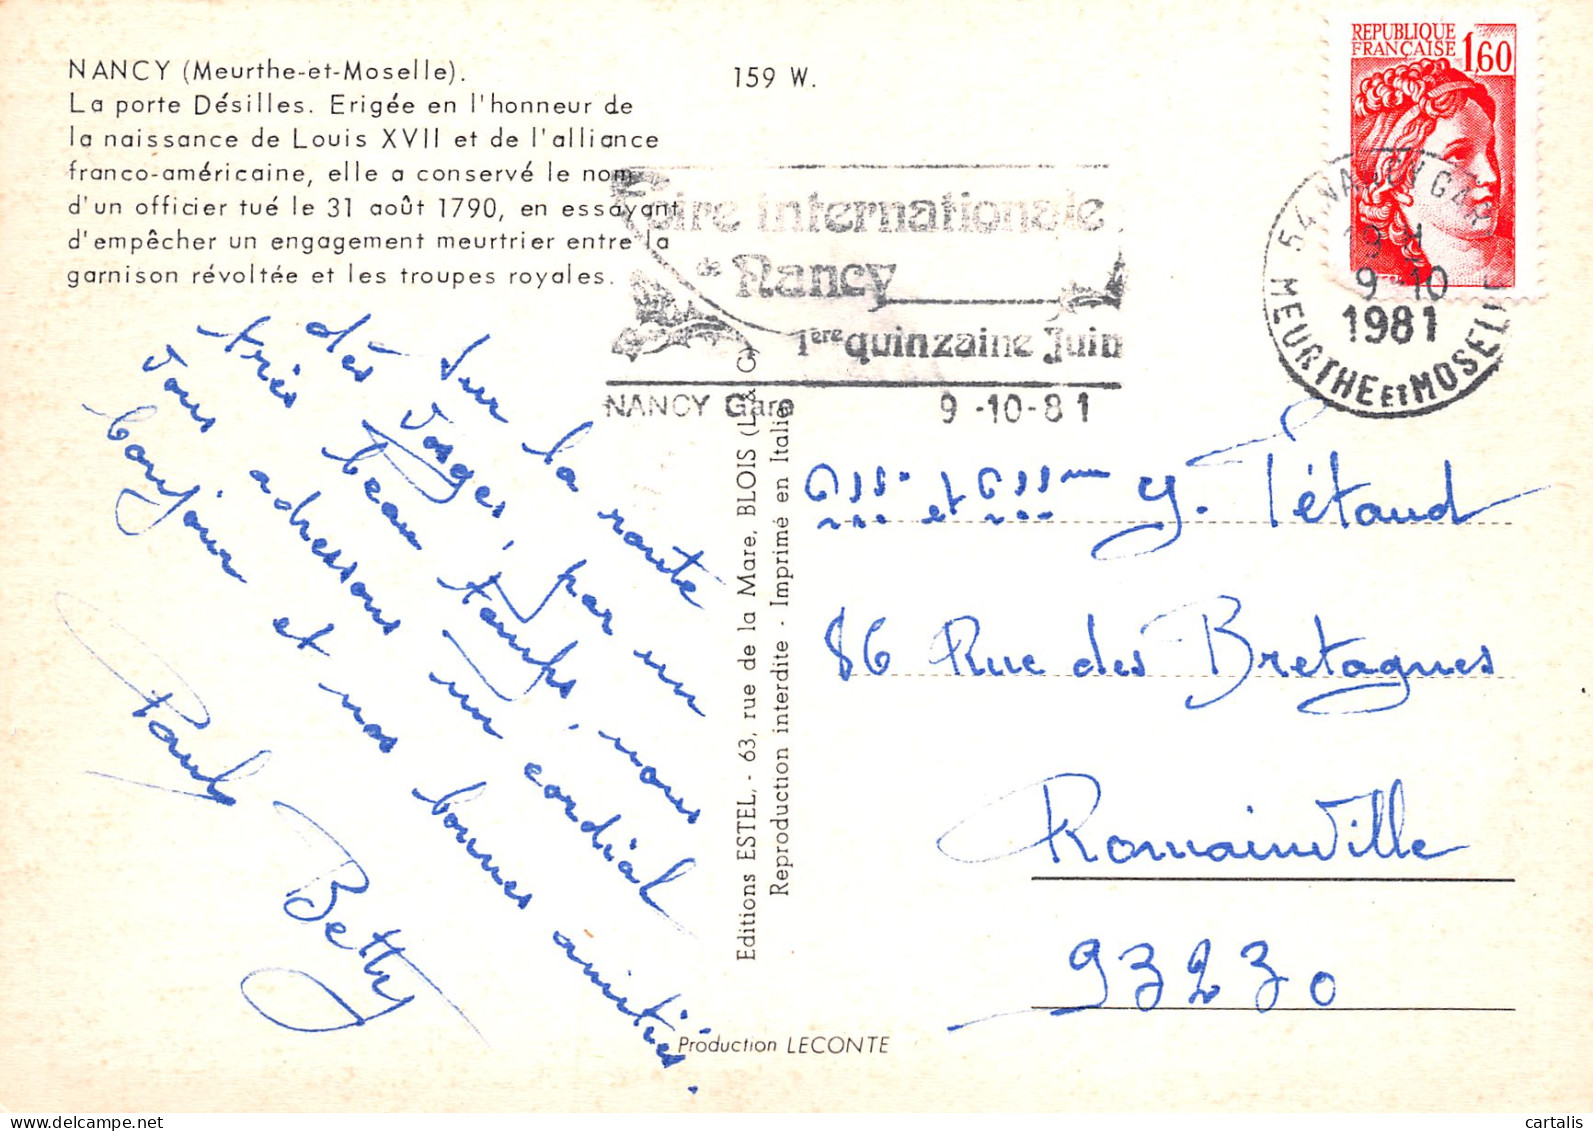 NANCY (Meurthe-et-Moselle).
La porte Désilles. Erigée en l'honneur de
la naissance de Louis XVII et de l'alliance
franco-américaine, elle a conservé le nom
d'un officier tué le 31 août 1790, en essayant
d'empêcher un engagement meurtrier entre la
garnison révoltée et les troupes royales.
159 W.
REPUBLIQUE
FRANÇAISE 1,60
Foire internationale
de Nancy
1ère quinzaine Juin
NANCY Gare 9-10-81
54 NANCY GARE
9-10
1981
MEURTHE ET MOSELLE
Sur la route
des Vosges, par un
très beau temps, nous
vous adressons un cordial
bonjour et nos bonnes amitiés.
Pauly
Betty
Editions ESTEL, - 63, rue de la Mare, BLOIS (L. & C.)
Reproduction interdite - Imprimé en Italie
et Y. Tétaud
86 Rue des Bretagnes
Romainville
93230
Production LECONTE
cartalis